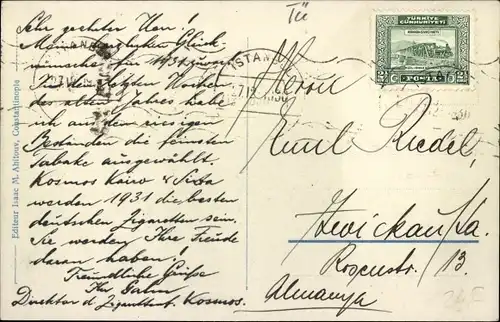 Sehr geehrter Herr!
Meine herzlichsten Glück-
wünsche für 1931 zuvor.
In den letzten Wochen
des alten Jahres habe
ich aus den riesigen
Beständen die feinsten
Tabake ausgewählt.
Kosmos Kairo &
werden 1931 die besten
deutschen Zigaretten sein.
Sie werden Ihre Freude
daran haben!
Freundliche Grüße
Ihr
Direktor d. Zigarettenf. Kosmos.
Editeur Isaac M. Ahitouv, Constantinople
ISTAN
TÜRKİYE
CUMHURİYETİ
POSTA
Herrn
Emil Riedel,
Zwickau/Sa.
Rosenstr. 13.
Almanya